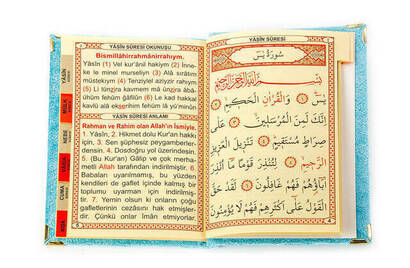 YÂSİN SÛRESİ OKUNUŞU
Bismillâhirrahmânirrahym.
Yâsîn (1) Vel kur'ânil hakiym (2) İnne-
ke le minel murseliyn (3) Alâ sırâtım
müstekıym (4) Tenziylel aziyzir rahiym
(5) Li tünzira kavmem mâ ünzira âbâ-
ühüm fehüm ğâfilûn (6) Le kad hakkal
kavlü alâ ekserihim fehüm lâ yü'minûn.
YÂSİN SÛRESİ ANLAMI
Rahman ve Rahim olan Allah'ın İsmiyle.
1. Yâsîn, 2. Hikmet dolu Kur'an hakkı
için, 3. Sen şüphesiz peygamberler-
densin. 4. Dosdoğru yol üzerindesin.
5. (Bu Kur'an) Gâlip ve çok merha-
metli Allah tarafından indirilmiştir. 6.
Babaları uyarılmamış, bu yüzden
kendileri de gaflet içinde kalmış bir
toplumu uyarman için indirilmiş-
tir. 7. Yemin olsun ki onların çoğu
gafletlerinin cezasını hak etmişler-
dir. Çünkü onlar îmân etmiyorlar.
YÂSİN
MÜLK
NEBE
VAKIA
CUMA
YÂSİN SÛRESİ
سُورَةُ يٰسٓ
بِسْمِ اللّٰهِ الرَّحْمٰنِ الرَّحِيمِ
يٰسٓ ﴿١﴾ وَالْقُرْاٰنِ الْحَكِيمِ ﴿٢﴾
اِنَّكَ لَمِنَ الْمُرْسَلِينَ ﴿٣﴾ عَلٰى
صِرَاطٍ مُسْتَقِيمٍ ﴿٤﴾ تَنْزِيلَ الْعَزِيزِ
الرَّحِيمِ ﴿٥﴾ لِتُنْذِرَ قَوْمًا مَٓا اُنْذِرَ
اٰبَٓاؤُهُمْ فَهُمْ غَافِلُونَ ﴿٦﴾ لَقَدْ حَقَّ
الْقَوْلُ عَلٰٓى اَكْثَرِهِمْ فَهُمْ لَا يُؤْمِنُونَ
4